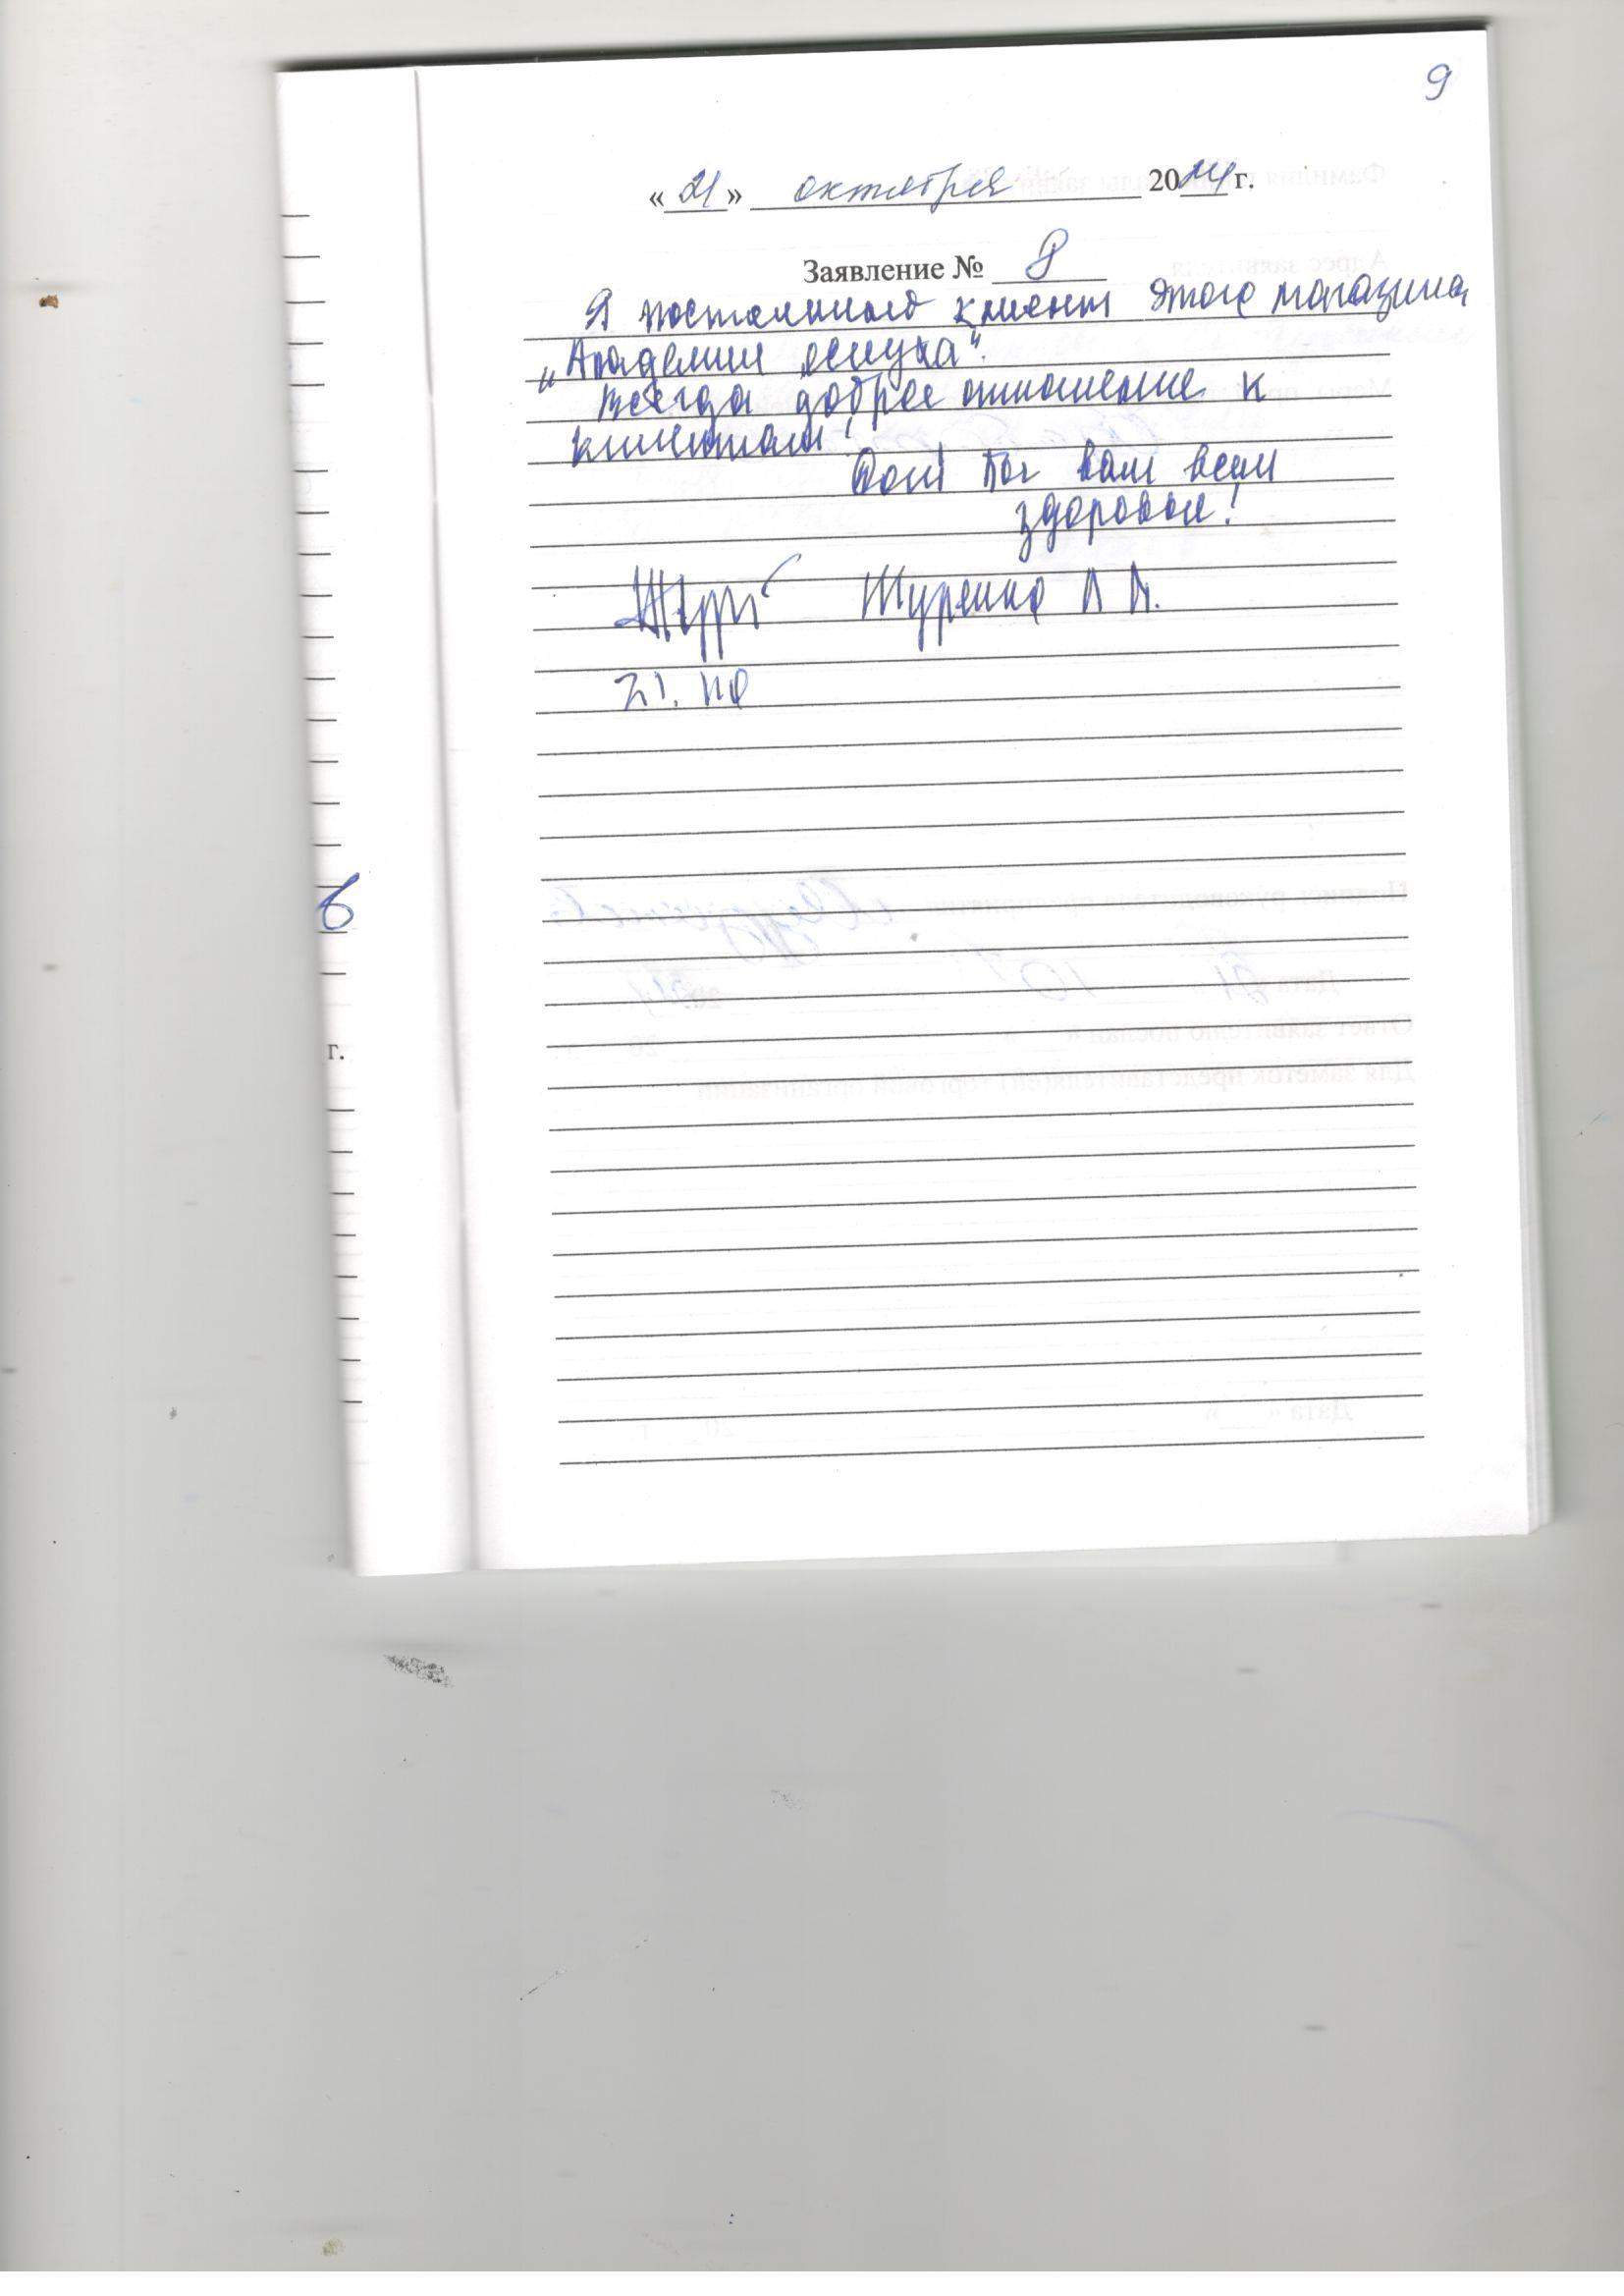 9
«21» октября 2014 г.
Заявление № 8
Я постоянный клиент этого магазина
„Академии слуха".
Всегда доброе отношение к
клиентам!
Дай Бог вам всем
здоровья!
Шуренко Л А.
21. 10
6
г.